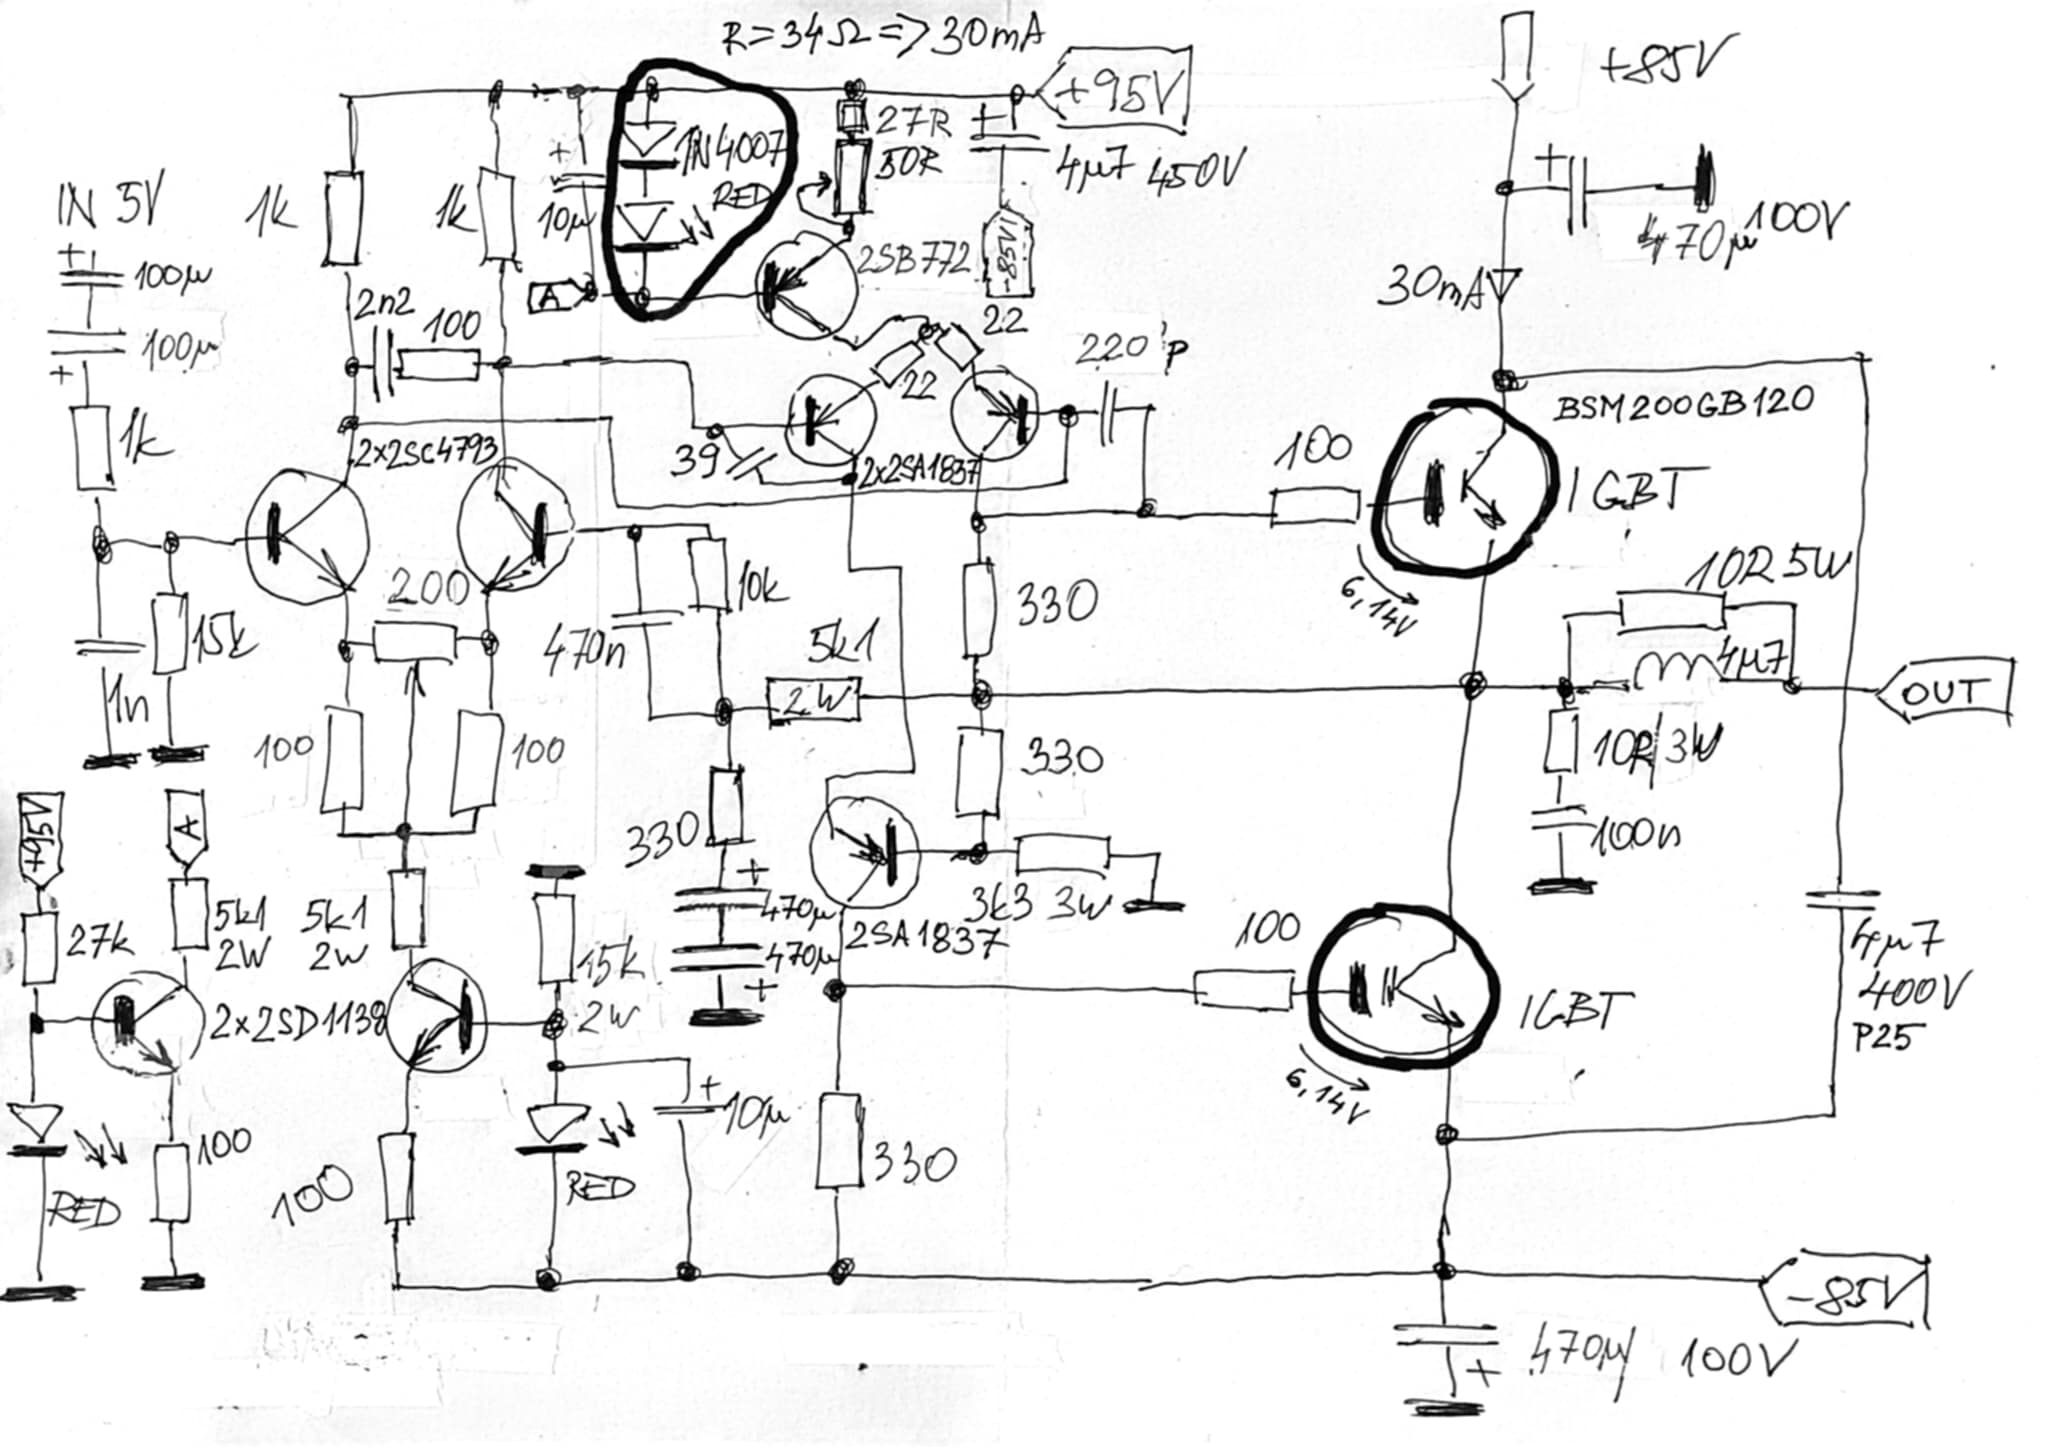 R=34Ω=>30mA
+95V
+85V
27R
50R
1N4007
RED
4µ7 450V
IN 5V
1k
1k
10µ
+
+
+
100µ
100µ
+
A
2SB772
-85V
470µ 100V
30mA
2n2
100
22
22
220p
BSM200GB120
1k
2x2SC4793
39
2x2SA1837
100
IGBT
6,14V
10R 5W
15k
200
10k
330
470n
5k1
4µ7
1n
2W
OUT
100
100
330
10R/3W
100n
+95V
A
330
+
470µ
470µ
+
3k3 3W
2SA1837
100
27k
5k1
2W
5k1
2W
15k
2W
4µ7
400V
P25
2x2SD1138
IGBT
6,14V
+
10µ
100
RED
100
RED
330
-85V
470µ 100V
+